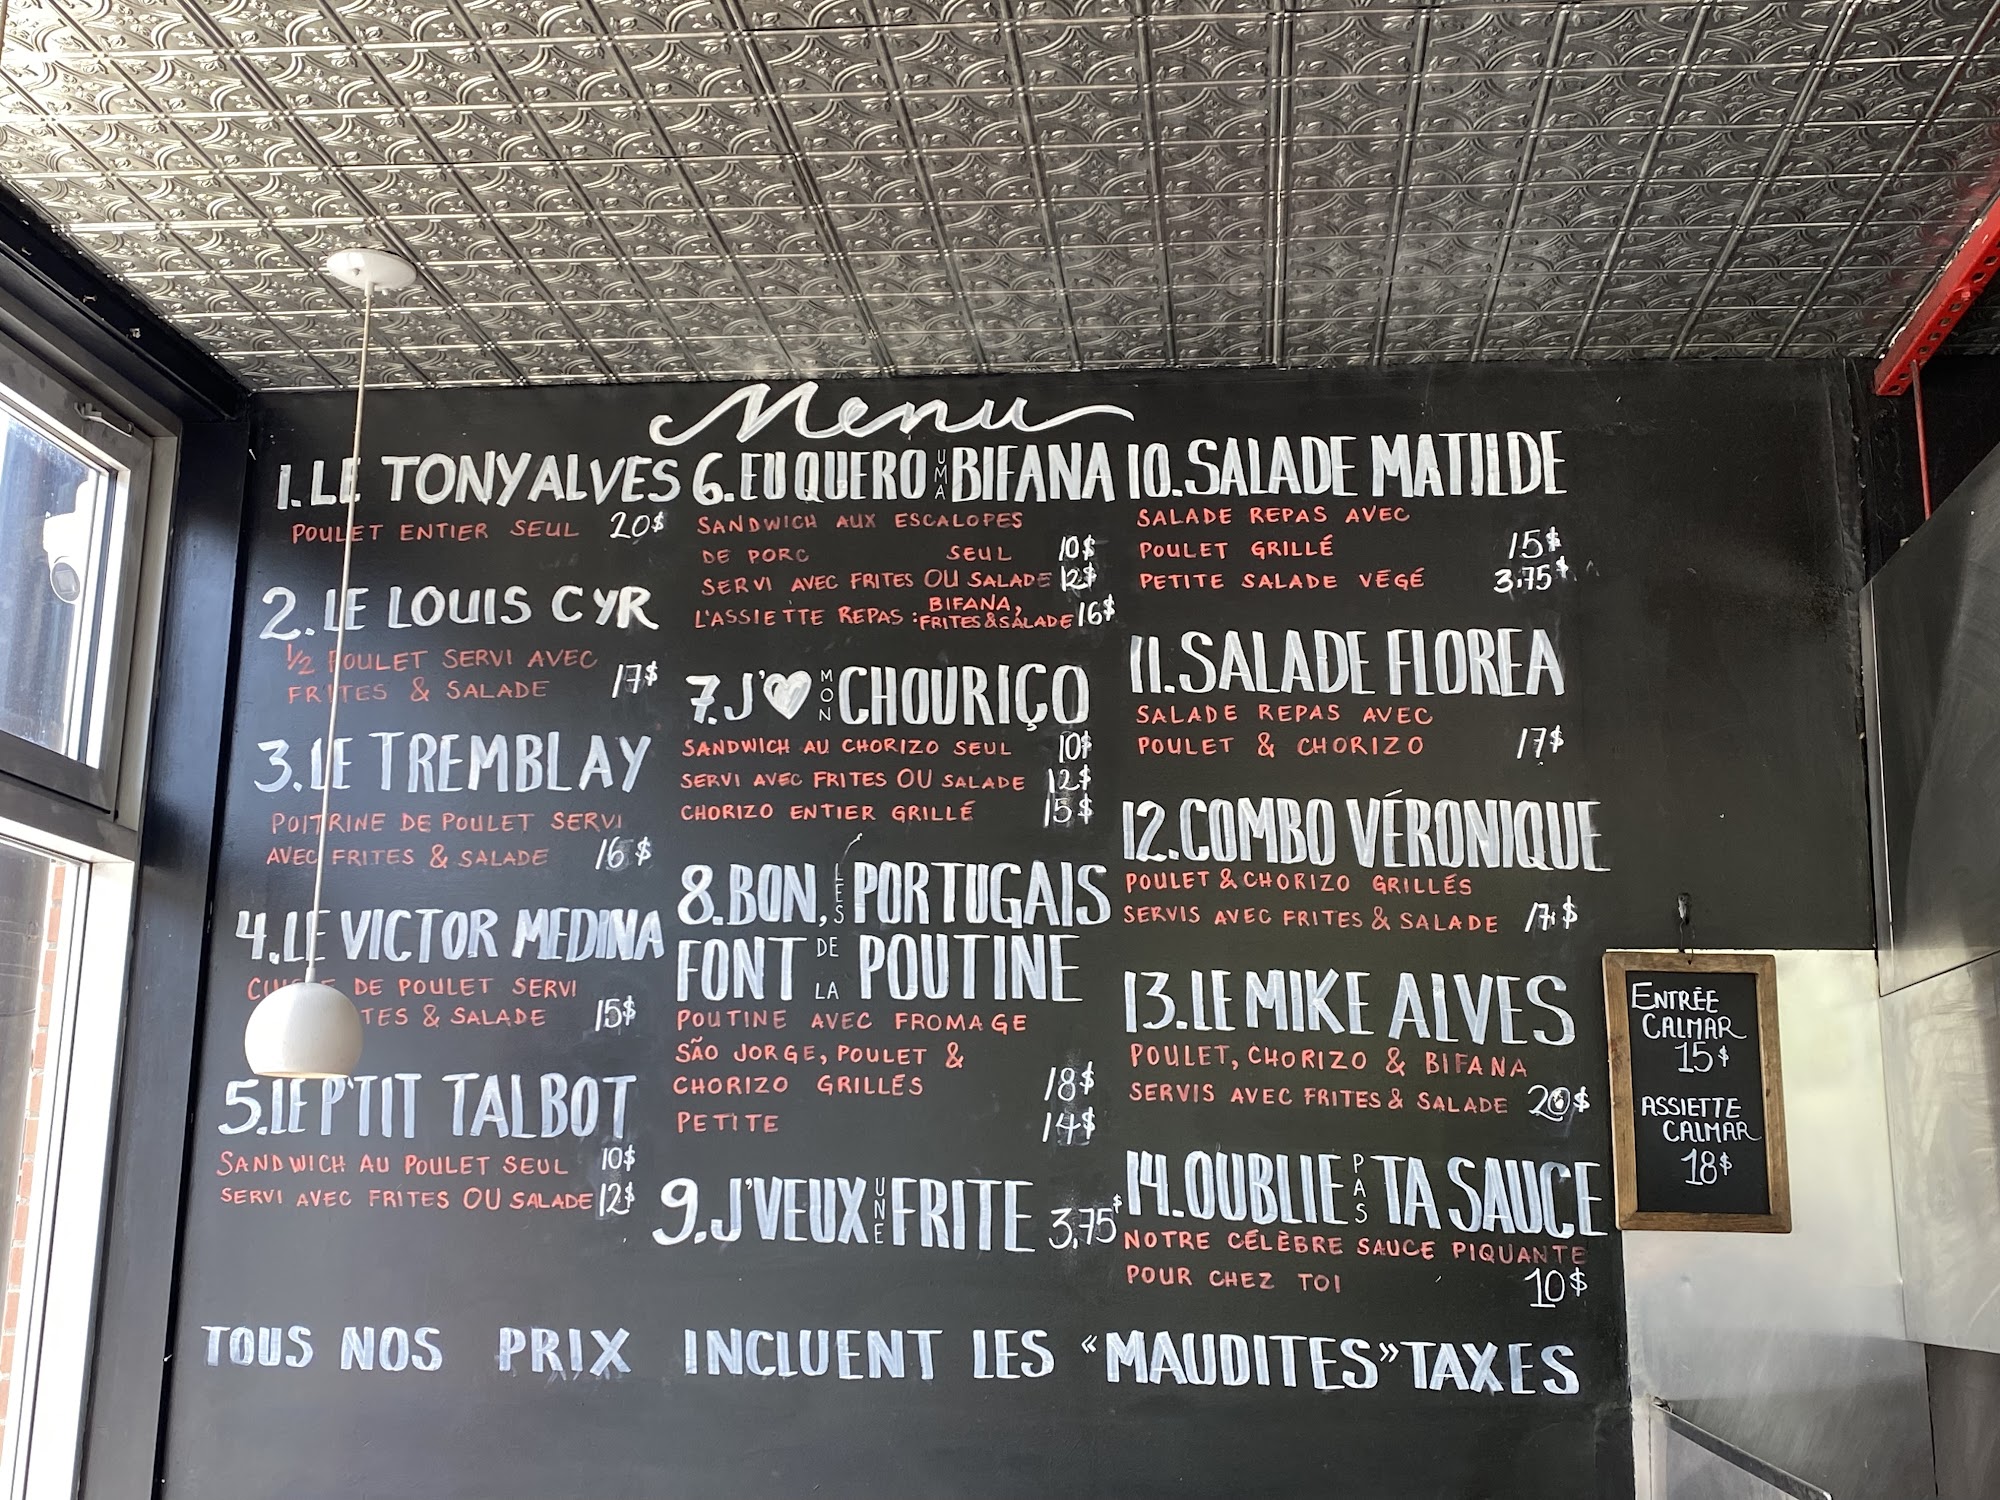 Menu
1. LE TONY ALVES
POULET ENTIER SEUL 20$
2. LE LOUIS CYR
1/2 POULET SERVI AVEC
FRITES & SALADE 17$
3. LE TREMBLAY
POITRINE DE POULET SERVI
AVEC FRITES & SALADE 16$
4. LE VICTOR MEDINA
DE POULET SERVI
& SALADE 15$
5. LE P'TIT TALBOT
SANDWICH AU POULET SEUL 10$
SERVI AVEC FRITES OU SALADE 12$
6. EU QUERO UMA BIFANA
SANDWICH AUX ESCALOPES
DE PORC SEUL 10$
SERVI AVEC FRITES OU SALADE 12$
L'ASSIETTE REPAS : BIFANA, FRITES & SALADE 16$
7. J'♥ MON CHOURIÇO
SANDWICH AU CHORIZO SEUL 10$
SERVI AVEC FRITES OU SALADE 12$
CHORIZO ENTIER GRILLÉ 15$
8. BON, LES PORTUGAIS
FONT DE LA POUTINE
POUTINE AVEC FROMAGE
SÃO JORGE, POULET &
CHORIZO GRILLÉS 18$
PETITE 14$
9. J'VEUX UNE FRITE 3,75$
10. SALADE MATILDE
SALADE REPAS AVEC
POULET GRILLÉ 15$
PETITE SALADE VÉGÉ 3,75$
11. SALADE FLOREA
SALADE REPAS AVEC
POULET & CHORIZO 17$
12. COMBO VÉRONIQUE
POULET & CHORIZO GRILLÉS
SERVIS AVEC FRITES & SALADE 17$
13. LE MIKE ALVES
POULET, CHORIZO & BIFANA
SERVIS AVEC FRITES & SALADE 20$
14. OUBLIE PAS TA SAUCE
NOTRE CÉLÈBRE SAUCE PIQUANTE
POUR CHEZ TOI 10$
TOUS NOS PRIX INCLUENT LES «MAUDITES» TAXES
ENTRÉE
CALMAR
15$
ASSIETTE
CALMAR
18$